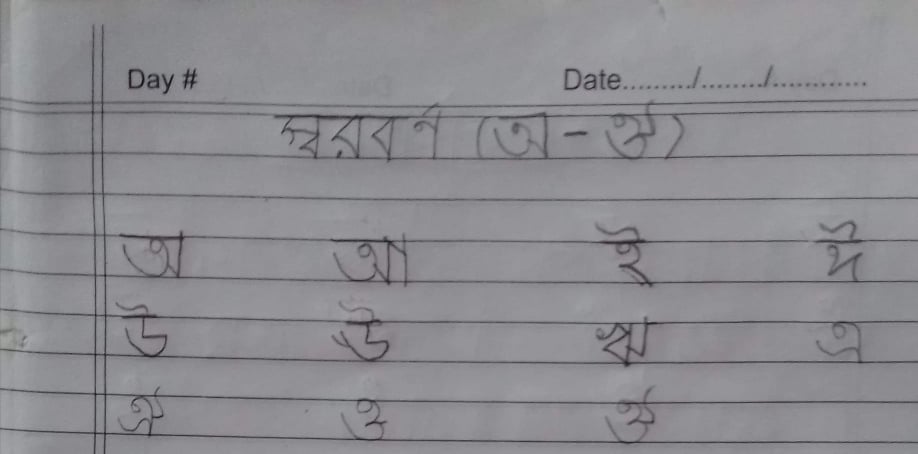 Day # Date........./......../............
স্বরবর্ণ (অ - ঔ)
অ আ ই ঈ
উ ঊ ঋ এ
ঐ ও ঔ